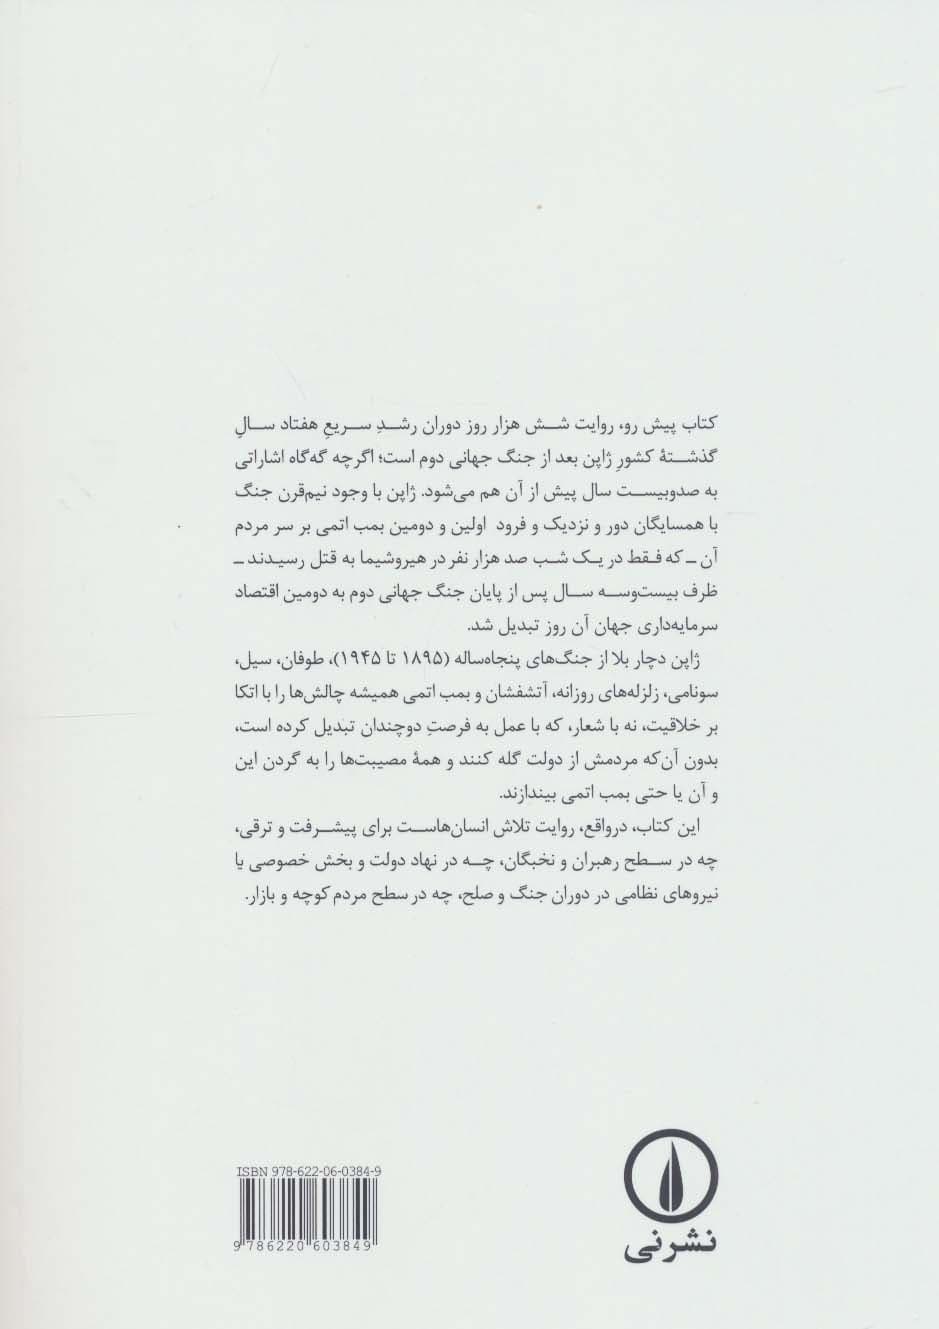 کتاب پیش رو، روایت شش هزار روز دوران رشدِ سریعِ هفتاد سالِ
گذشتهٔ کشورِ ژاپن بعد از جنگ جهانی دوم است؛ اگرچه گه‌گاه اشاراتی
به صدوبیست سال پیش از آن هم می‌شود. ژاپن با وجود نیم‌قرن جنگ
با همسایگان دور و نزدیک و فرود اولین و دومین بمب اتمی بر سر مردم
آن ــ که فقط در یک شب صد هزار نفر در هیروشیما به قتل رسیدند ــ
ظرف بیست‌وسه سال پس از پایان جنگ جهانی دوم به دومین اقتصاد
سرمایه‌داری جهان آن روز تبدیل شد.
ژاپن دچار بلا از جنگ‌های پنجاه‌ساله (۱۸۹۵ تا ۱۹۴۵)، طوفان، سیل،
سونامی، زلزله‌های روزانه، آتشفشان و بمب اتمی همیشه چالش‌ها را با اتکا
بر خلاقیت، نه با شعار، که با عمل به فرصتِ دوچندان تبدیل کرده است،
بدون آن‌که مردمش از دولت گله کنند و همهٔ مصیبت‌ها را به گردن این
و آن یا حتی بمب اتمی بیندازند.
این کتاب، درواقع، روایت تلاش انسان‌هاست برای پیشرفت و ترقی،
چه در سطح رهبران و نخبگان، چه در نهاد دولت و بخش خصوصی یا
نیروهای نظامی در دوران جنگ و صلح، چه در سطح مردم کوچه و بازار.
ISBN 978-622-06-0384-9
9 786220 603849
نشرنی